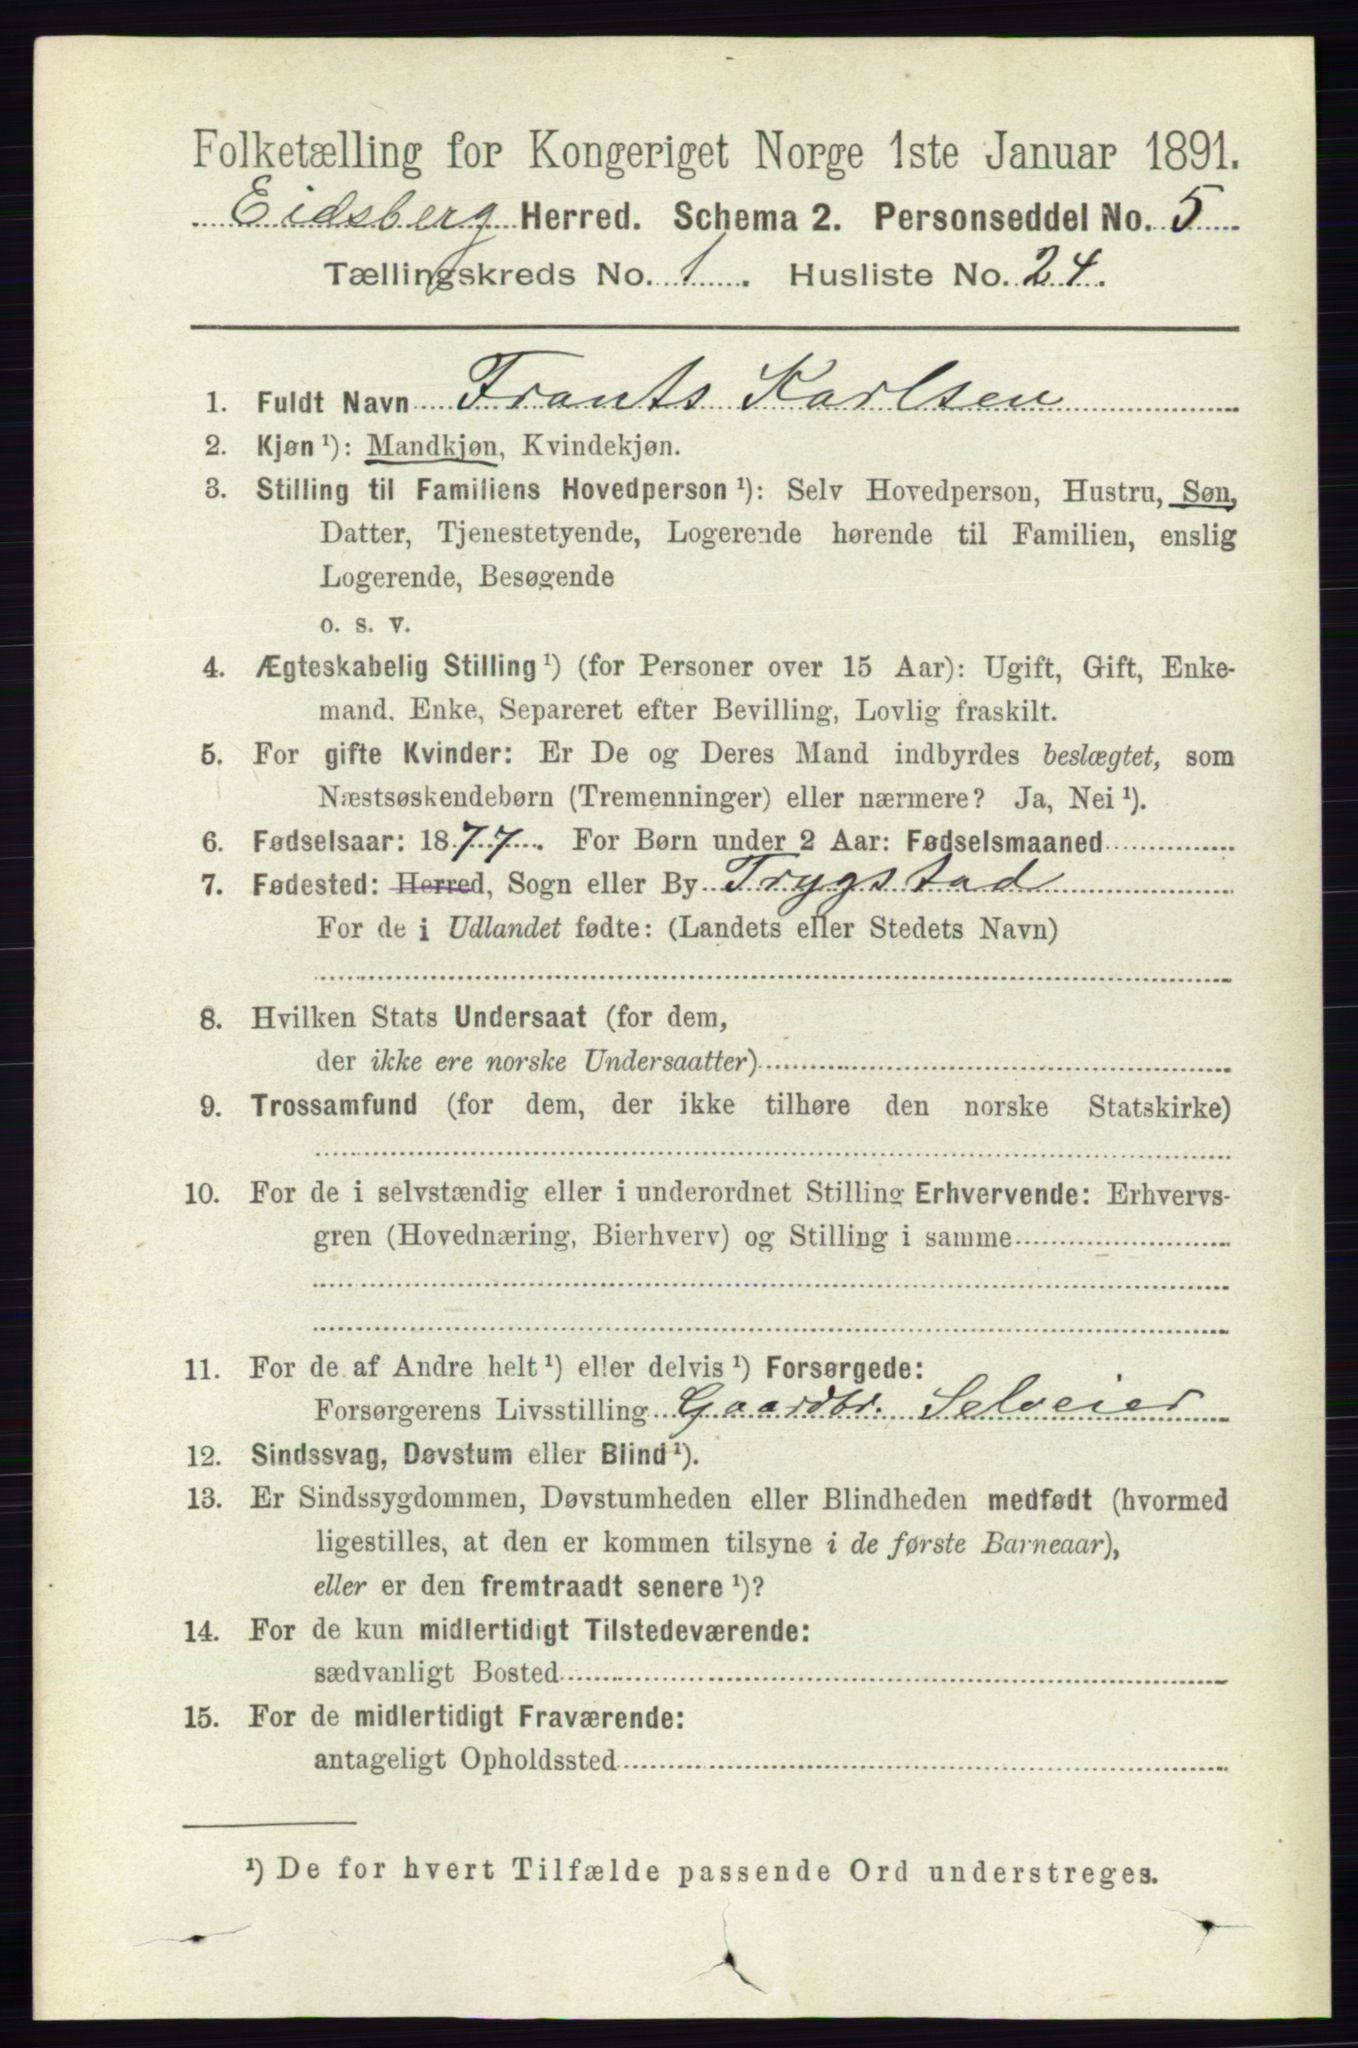 Folketælling for Kongeriget Norge 1ste Januar 1891.
Eidsberg Herred. Schema 2. Personseddel No. 5
Tællingskreds No. 1. Husliste No. 24.
1. Fuldt Navn Frants Karlsen
2. Kjøn ¹): Mandkjøn, Kvindekjøn.
3. Stilling til Familiens Hovedperson ¹): Selv Hovedperson, Hustru, Søn,
Datter, Tjenestetyende, Logerende hørende til Familien, enslig
Logerende, Besøgende
o. s. v.
4. Ægteskabelig Stilling ¹) (for Personer over 15 Aar): Ugift, Gift, Enke-
mand, Enke, Separeret efter Bevilling, Lovlig fraskilt.
5. For gifte Kvinder: Er De og Deres Mand indbyrdes beslægtet, som
Næstsøskendebørn (Tremenninger) eller nærmere? Ja, Nei ¹).
6. Fødselsaar: 1877. For Børn under 2 Aar: Fødselsmaaned
7. Fødested: Herred, Sogn eller By Trygstad
For de i Udlandet fødte: (Landets eller Stedets Navn)
8. Hvilken Stats Undersaat (for dem,
der ikke ere norske Undersaatter)
9. Trossamfund (for dem, der ikke tilhøre den norske Statskirke)
10. For de i selvstændig eller i underordnet Stilling Erhvervende: Erhvervs-
gren (Hovednæring, Bierhverv) og Stilling i samme
11. For de af Andre helt ¹) eller delvis ¹) Forsørgede:
Forsørgerens Livsstilling Gaardbr. Selveier
12. Sindssvag, Døvstum eller Blind ¹).
13. Er Sindssygdommen, Døvstumheden eller Blindheden medfødt (hvormed
ligestilles, at den er kommen tilsyne i de første Barneaar),
eller er den fremtraadt senere ¹)?
14. For de kun midlertidigt Tilstedeværende:
sædvanligt Bosted
15. For de midlertidigt Fraværende:
antageligt Opholdssted
¹) De for hvert Tilfælde passende Ord understreges.